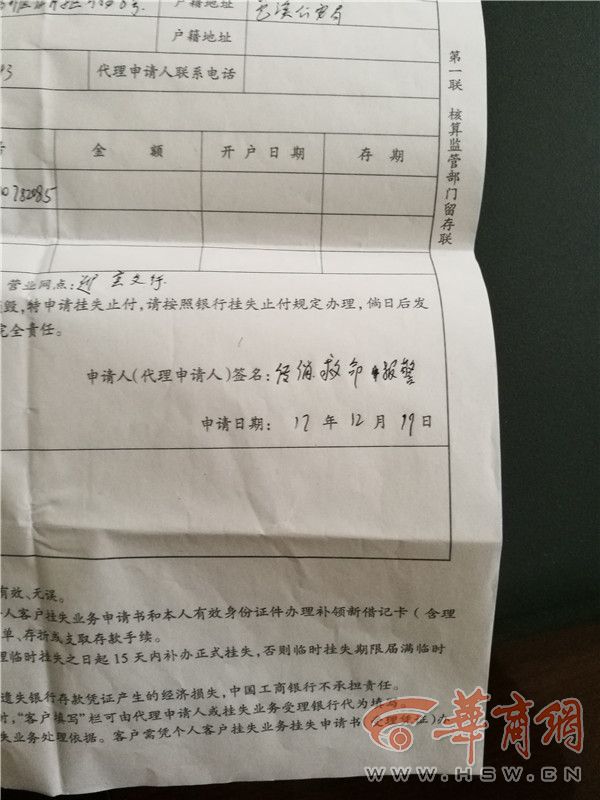 户籍地址
户籍地址
代理申请人联系电话
第一联 核算监管部门留存联
号 金 额 开户日期 存 期
0782085
营业网点:
毁,特申请挂失止付,请按照银行挂失止付规定办理,倘日后发
完全责任。
申请人(代理申请人)签名:传销救命 报警
申请日期: 17 年 12 月 19 日
有效、无误。
人客户挂失业务申请书和本人有效身份证件办理补领新借记卡(含理
单、存折或支取存款手续。
理临时挂失之日起 15 天内补办正式挂失,否则临时挂失期限届满临时
遗失银行存款凭证产生的经济损失,中国工商银行不承担责任。
时,“客户填写”栏可由代理申请人或挂失业务受理银行代为填写。
失业务处理依据。客户需凭个人客户挂失业务挂失申请书(受理凭证)办
華商網
WWW.HSW.CN